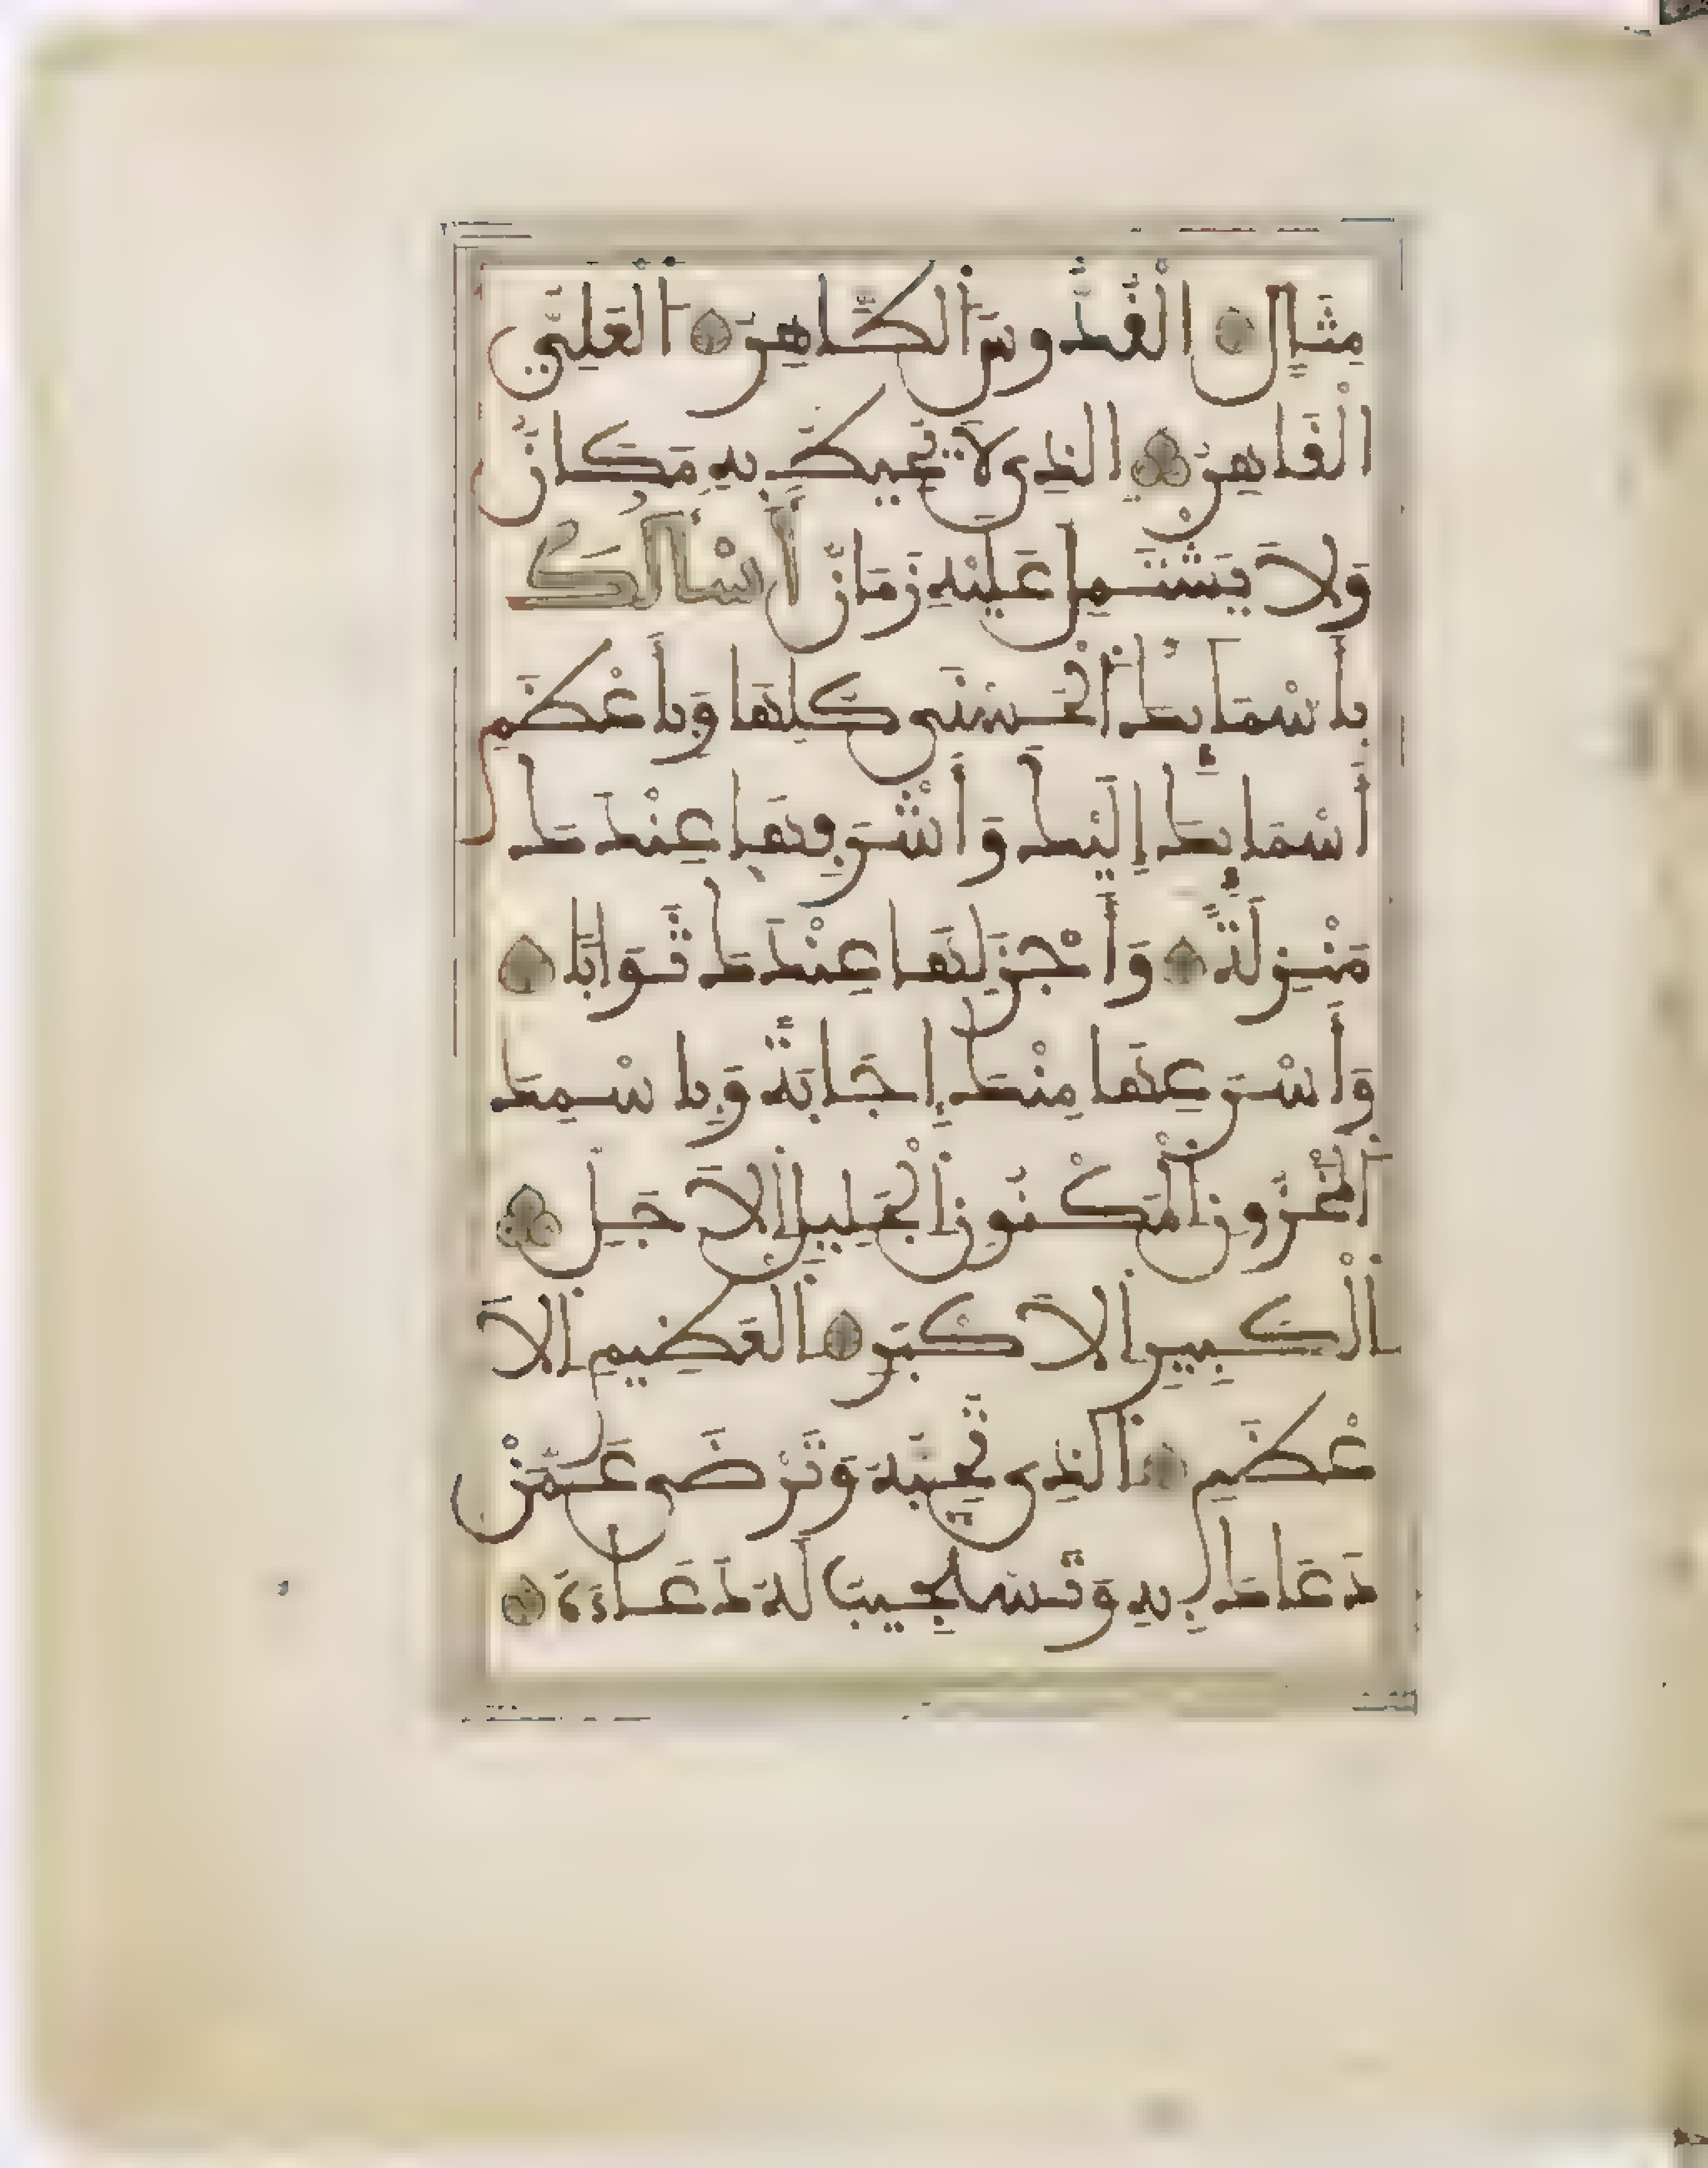 مِثَالٍ الْقُدُّوسِ الطَّاهِرِ الْعَلِيِّ
الْقَاهِرِ الذِي لَا يُحِيطُ بِهِ مَكَانٌ
وَلَا يَشْتَمِلُ عَلَيْهِ زَمَانٌ أَسْأَلُكَ
بِأَسْمَائِكَ الْحُسْنَى كُلِّهَا وَبِأَعْظَمِ
أَسْمَائِكَ إِلَيْكَ وَأَشْرَفِهَا عِنْدَكَ
مَنْزِلَةً وَأَجْزَلِهَا عِنْدَكَ ثَوَابًا
وَأَسْرَعِهَا مِنْكَ إِجَابَةً وَبِاسْمِكَ
الْمَخْزُونِ الْمَكْنُونِ الْجَلِيلِ الْأَجَلِّ
الْكَبِيرِ الْأَكْبَرِ الْعَظِيمِ الْأَ
عْظَمِ الذِي تُحِبُّهُ وَتَرْضَى عَمَّنْ
دَعَاكَ بِهِ وَتَسْتَجِيبُ لَهُ دُعَاءَهُ